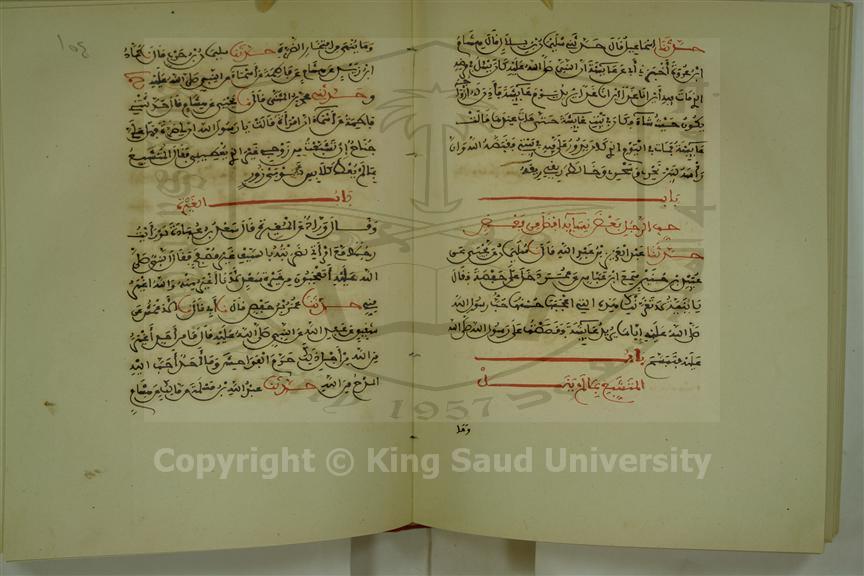 حدثنا اسماعيل قال حدثني سليمان بن بلال قال قال هشام
ابن عروة أخبرني أبي عن عايشة ان النبي صلى الله عليه كان يسئل في مرضه
الذي مات فيه أين أنا غدا أين أنا غدا يريد يوم عايشة فأذن له أزواجه
يكون حيث شاء فكان في بيت عايشة حتى مات عندها قالت
عايشة فمات في اليوم الذي كان يدور علي فيه في بيتي فقبضه الله وان
رأسه لبين نحري وسحري وخالط ريقه ريقي
باب
حب الرجل بعض نسايه افضل من بعض
حدثنا عبد العزيز بن عبد الله قال سليمان عن يحيى عن
عبيد بن حنين سمع ابن عباس عن عمر دخل على حفصة فقال
يا بنية لا تغرنك هذه التي اعجبها حسنها حب رسول الله
صلى الله عليه إياها يريد عايشة فقصصت على رسول الله صلى الله
عليه فتبسم باب
المتشبع بما لم ينل
وما
١٥٤
وما ينهى من افتخار الضرة حدثنا سليمان بن حرب قال حماد
ابن زيد عن هشام عن فاطمة عن أسماء عن النبي صلى الله عليه ح
وحدثني محمد بن المثنى قال يحيى عن هشام قال حدثتني
فاطمة عن أسماء ان امرأة قالت يا رسول الله ان لي ضرة فهل علي
جناح ان تشبعت من زوجي غير الذي يعطيني فقال المتشبع
بما لم يعط كلابس ثوبي زور
باب الغيرة
وقال وراد عن المغيرة قال سعد بن عبادة لو رأيت
رجلا مع امرأتي لضربته بالسيف غير مصفح فقال النبي صلى
الله عليه أتعجبون من غيرة سعد لأنا أغير منه والله أغير
مني حدثنا عمر بن حفص قال أبي قال الأعمش عن
شقيق عن عبد الله عن النبي صلى الله عليه قال ما من أحد أغير
من الله من أجل ذلك حرم الفواحش وما أحد أحب اليه
المدح من الله حدثنا عبد الله بن مسلمة عن مالك عن هشام
Copyright © King Saud University
1957